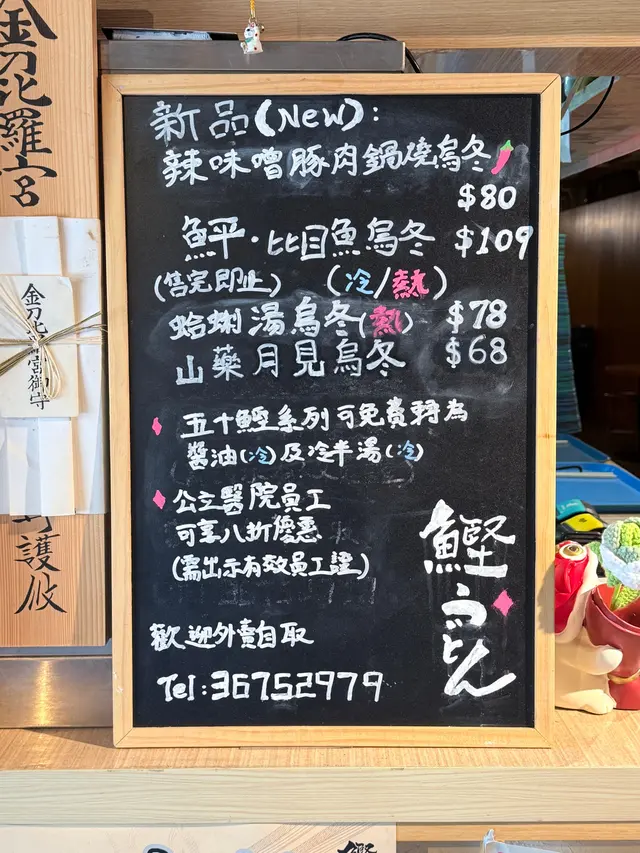 金刀比羅宮
金刀比羅宮御守
守護攸
新品(New):
辣味噌豚肉鍋燒烏冬
$80
鮃·比目魚烏冬 $109
(售完即止) (冷/熱)
蛤蜊湯烏冬(熱) $78
山藥月見烏冬 $68
五十鰹系列可免費轉為
醬油(冷)及冷半湯(冷)
公立醫院員工
可享八折優惠
(需出示有效員工證)
歡迎外賣自取
Tel:36752979
鰹うどん